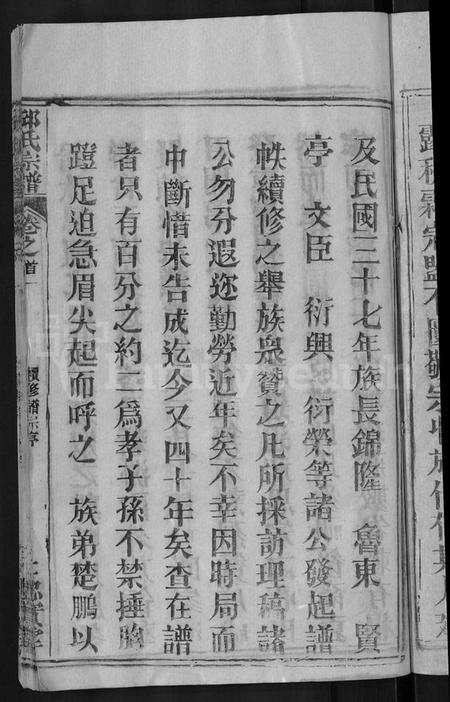 及民國三十七年族長錦隆　魯東　賢
亭　文臣　衍興　衍榮等諸公發起譜
帙續修之舉族衆贊之凡所採訪理稿諸
公勿分遐迩勤勞近年矣不幸因時局而
中斷惜未告成迄今又四十年矣查在譜
者只有百分之約一爲孝子孫不禁捶胸
蹬足迫急眉尖起而呼之　族弟楚鵬以
氏宗譜
卷之首
修譜序